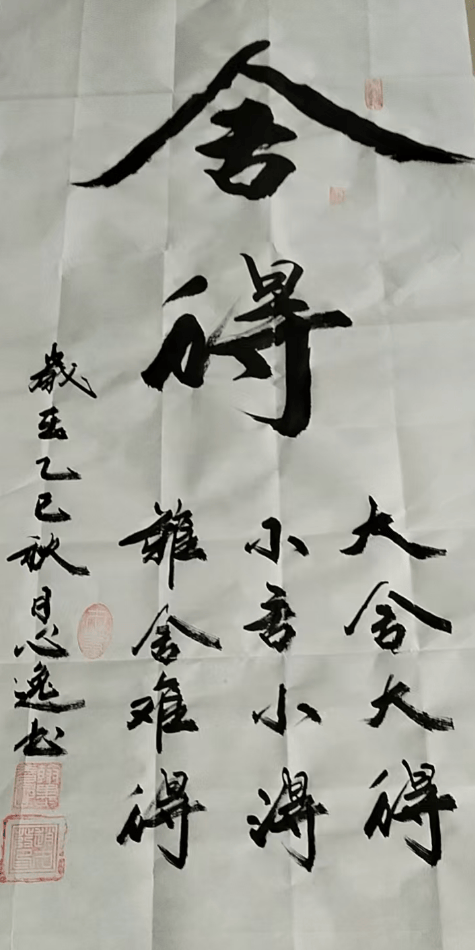 舍
得
大舍大得
小舍小得
難舍难得
歲在乙巳秋月心逸书